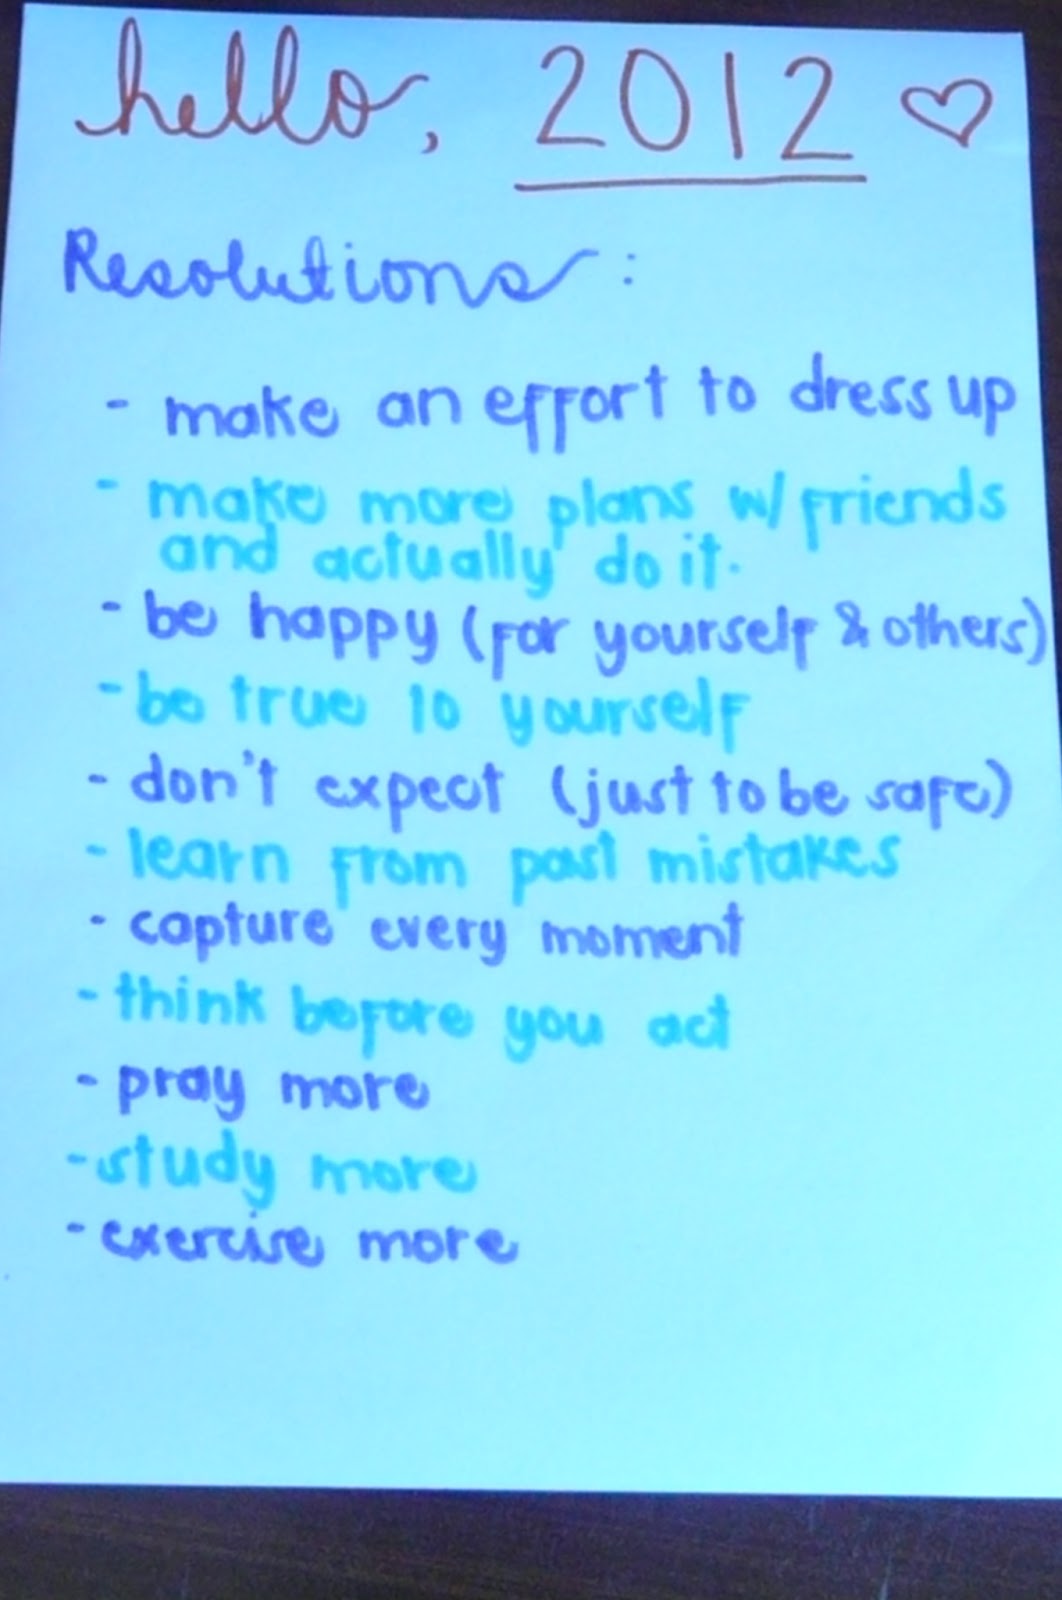 hello, 2012
Resolutions:
- make an effort to dress up
- make more plans w/ friends
and actually do it.
- be happy (for yourself & others)
- be true to yourself
- don't expect (just to be safe)
- learn from past mistakes
- capture every moment
- think before you act
- pray more
- study more
- exercise more